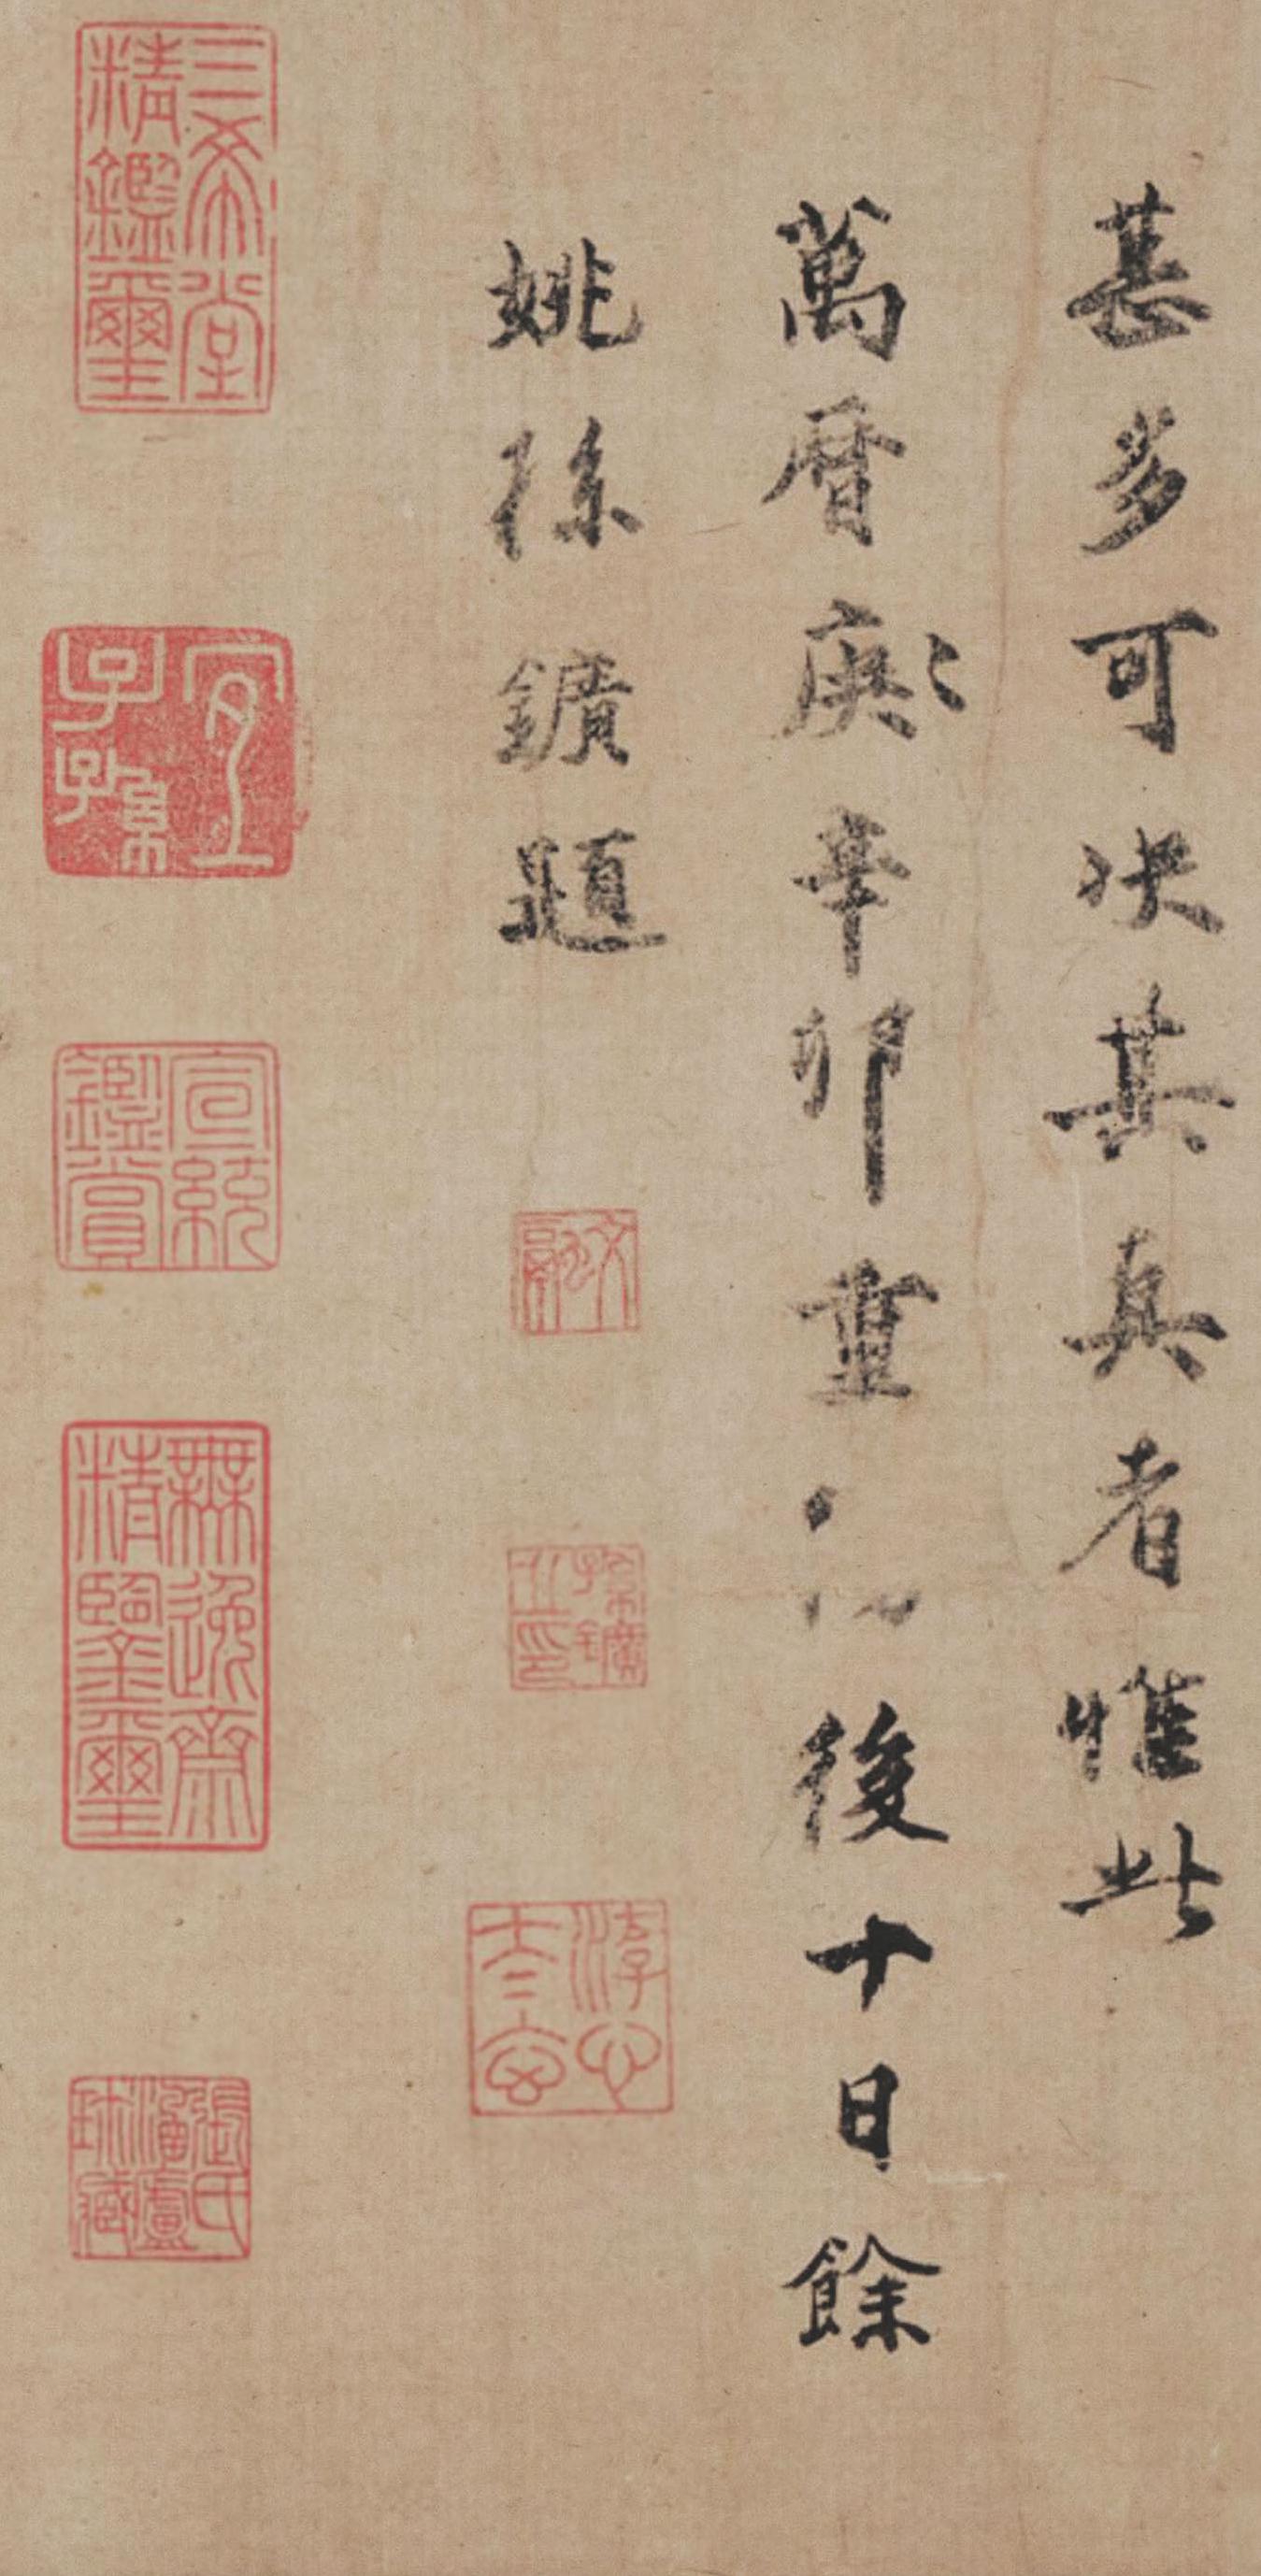 甚多可决其真者惟此
萬曆庚辛卯重後十日餘
姚孫鑛題
文融
孫鑛之印
淳心
三希堂精鑑璽
宜子孫
宣統鑑賞
無逸齋精鑒璽
張氏珍藏